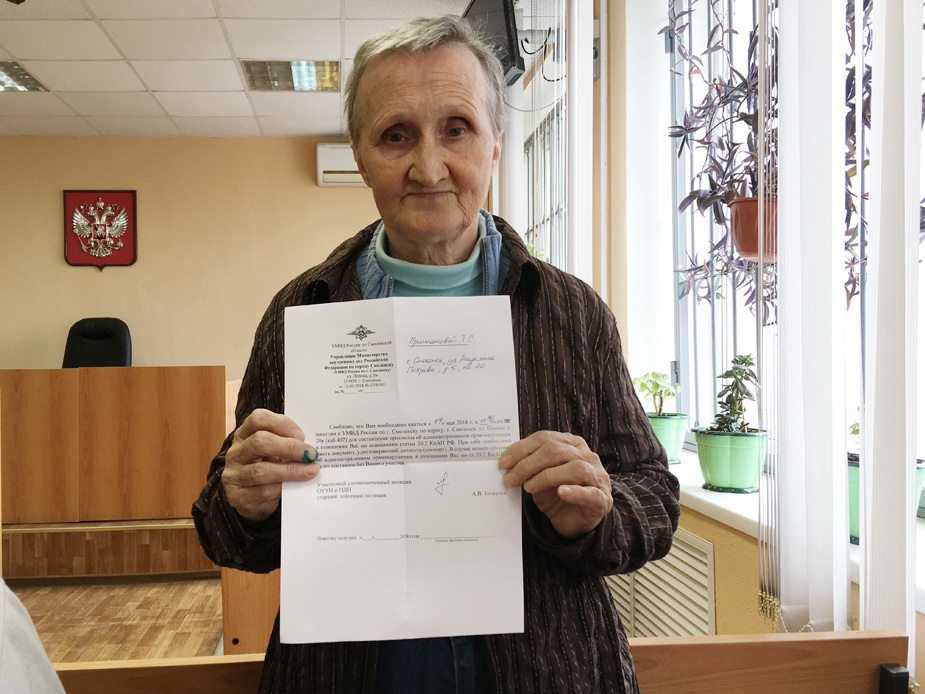 УМВД России по Смоленской
области
Управление Министерства
внутренних дел Российской
Федерации по городу Смоленску
(УМВД России по г. Смоленску)
г. Смоленск
на № от
Т.С
г. Смоленск, ул.
Сообщаю, что Вам необходимо явиться « 17 » мая 2018 г. в 11 часов
минутам в УМВД России по г. Смоленску по адресу: г. Смоленск, ул.
20а (каб.407) для составления протокола об административном правонарушении
в отношении Вас по основаниям статьи 20.2 КоАП РФ. При себе необходимо
иметь документ, удостоверяющий личность (паспорт). В случае неявки протокол
об административном правонарушении в отношении Вас по ст.20.2 КоАП
будет составлен без Вашего участия.
Участковый уполномоченный полиции
ОУУП и ПДН
старший лейтенант полиции
А.В.
Повестку получил «__»________ 2018 года